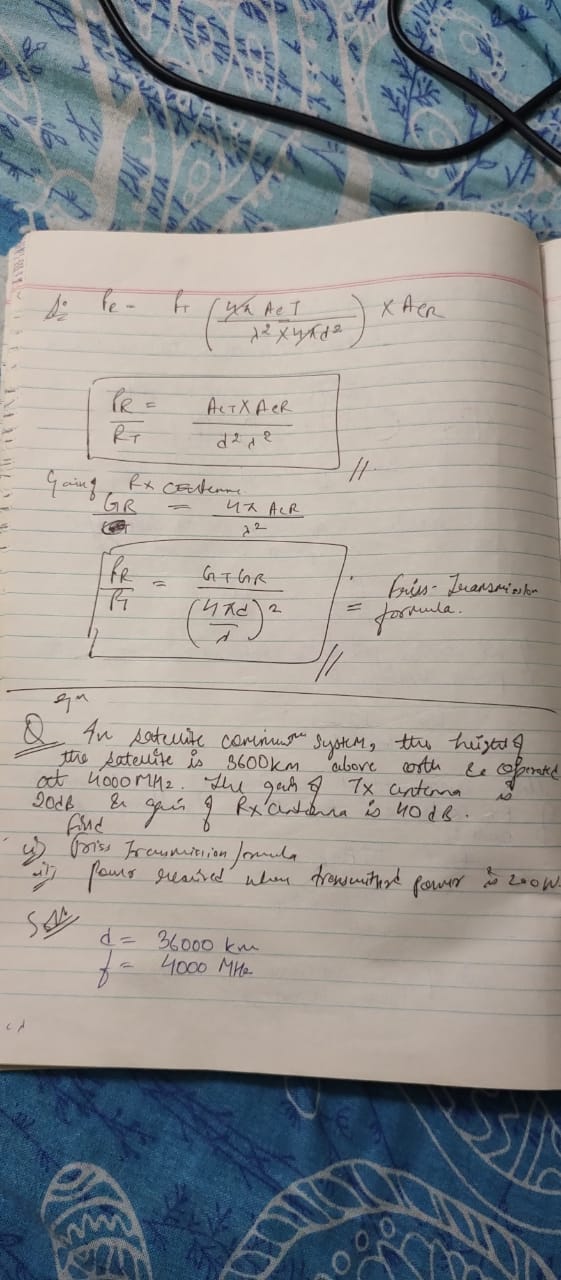 So PR = PT ( 4π AeT / λ² × 4πd² ) × AeR
PR / PT = AeT × AeR / d² λ²
Gain of Rx antenna
GR = 4π AeR / λ²
PR / PT = GT GR / ( 4πd / λ )² = Friss-Transmission
formula.
Q In satellite commun system, the height of
the satellite is 3600km above earth & operated
at 4000 MHz. The gain of Tx antenna is
20dB & gain of Rx antenna is 40 dB.
find
i) Friss Transmission formula
ii) Power received when transmitted power is 200W.
Sol
d = 36000 km
f = 4000 MHz